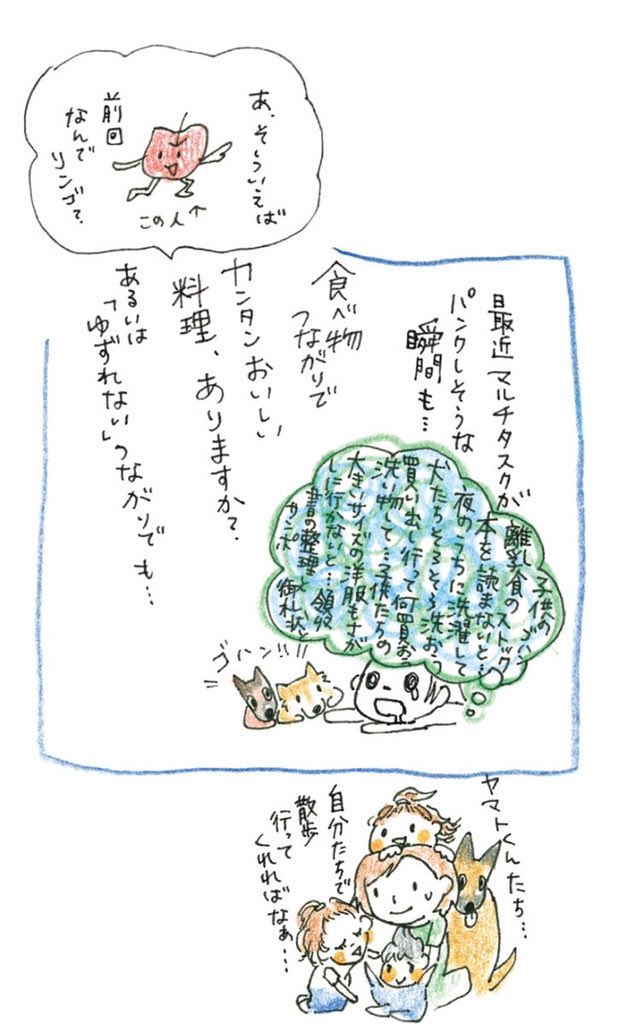 あ、そういえば
前回
なんで
リンゴ?
この人↑
最近マルチタスクが
パンクしそうな
瞬間も…
子供のゴハン
離乳食のストック
本を読まないと…
夜のうちに洗濯して
犬たちそろそろ洗おう
買い出し行って何買おう
洗い物して…子供たちの
大きいサイズの洋服もさが
しに行かないと…領収
書の整理と御礼状と
ゴハン!!!
食べ物
つながりで
カンタンおいしい
料理、ありますか?
あるいは
「ゆずれない」つながりでも…
ヤマトくんたち…
自分たちで
散歩
行って
くれればなぁ…